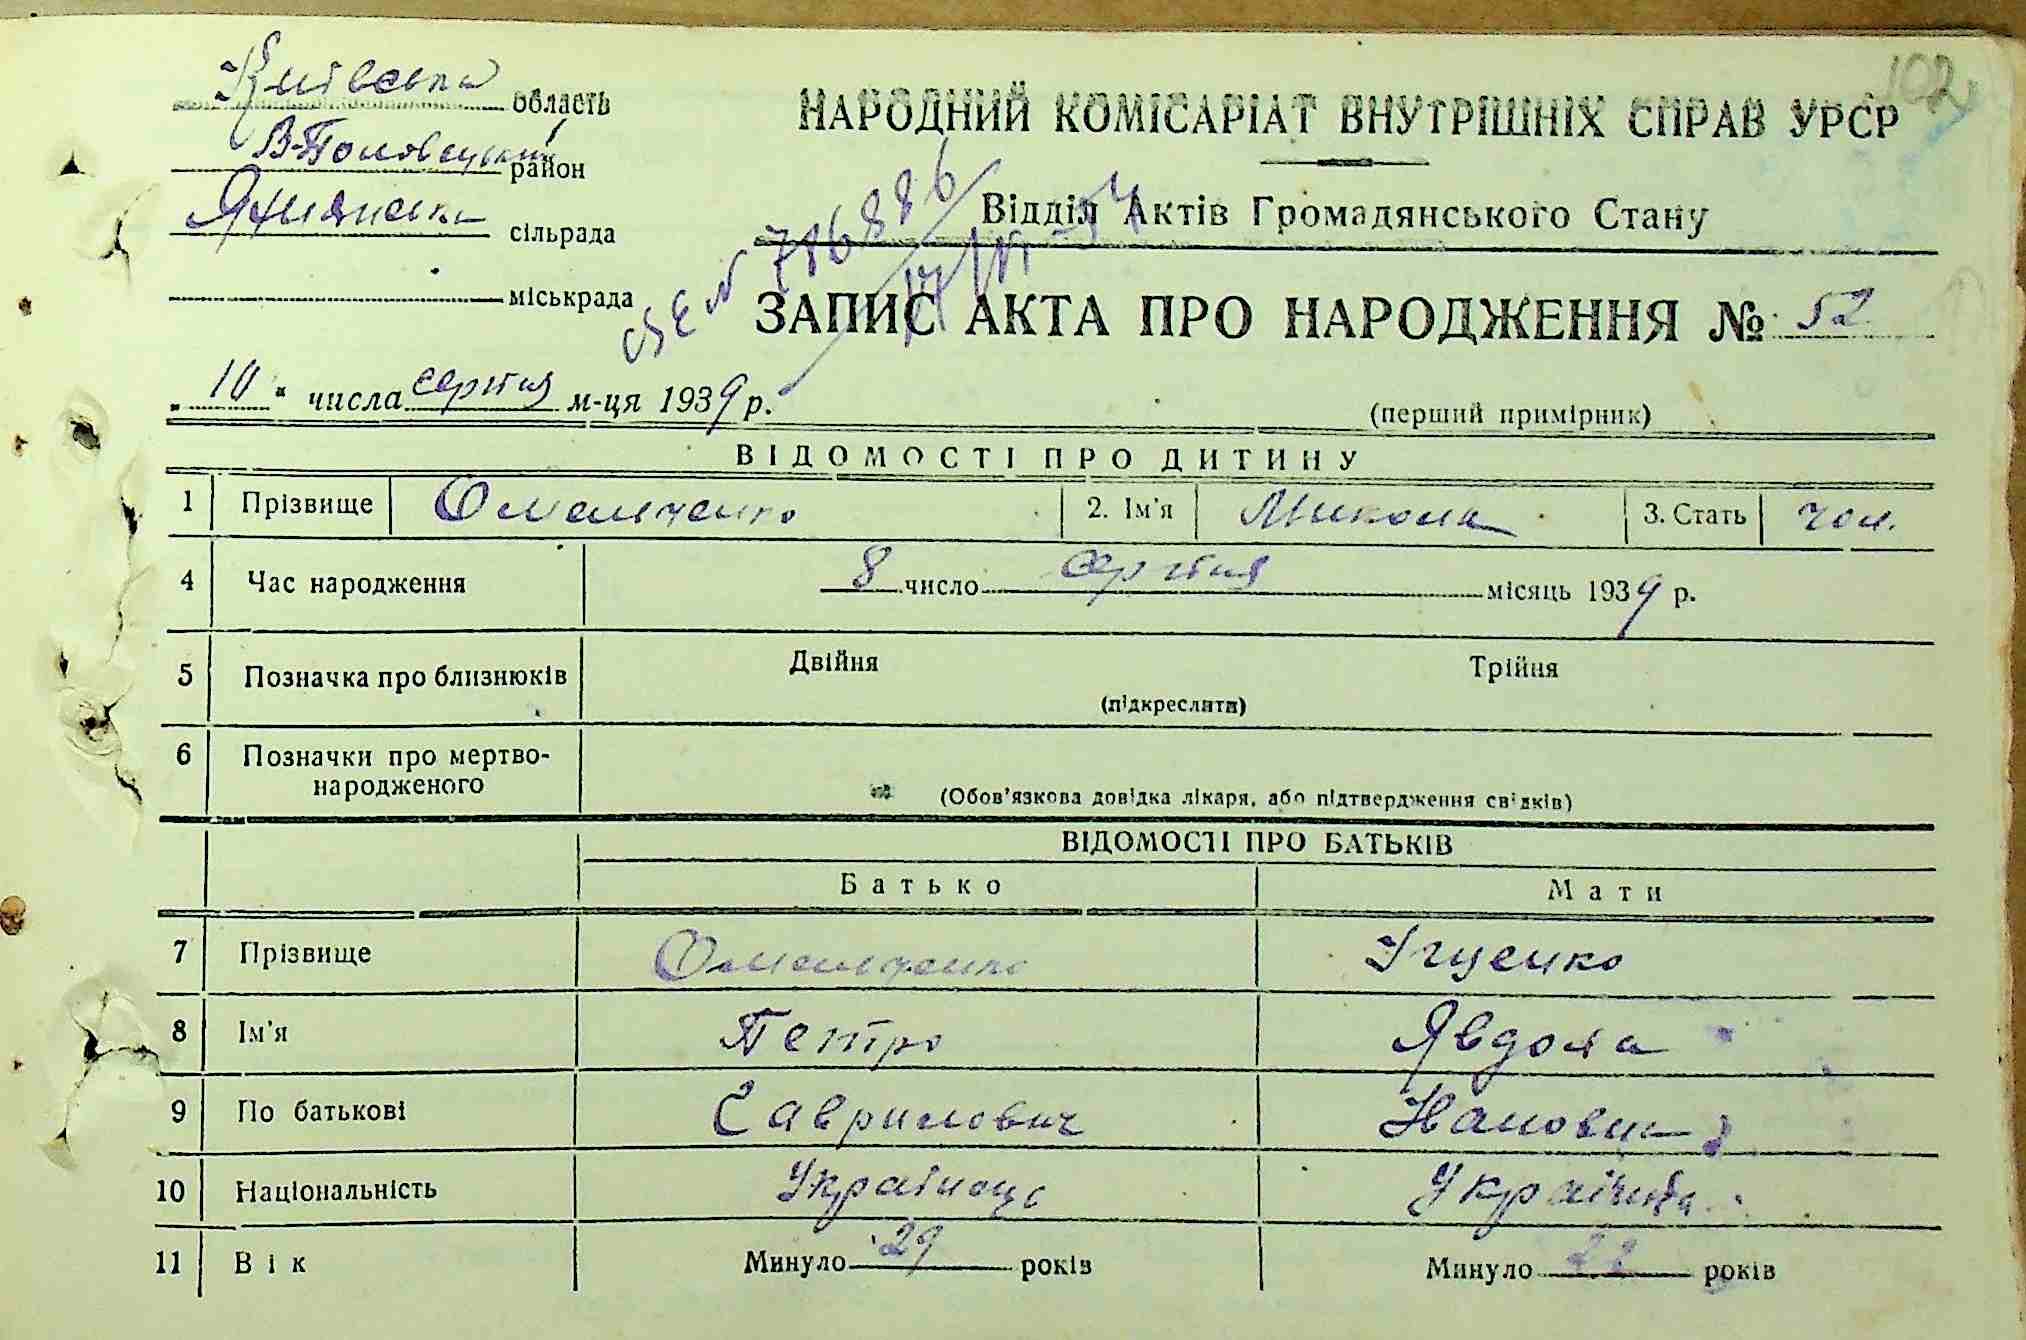 102
Київська область
В-Половецький район
Яхнянська сільрада
міськрада
НАРОДНИЙ КОМІСАРІАТ ВНУТРІШНІХ СПРАВ УРСР
Відділ Актів Громадянського Стану
№ 786886
ЗАПИС АКТА ПРО НАРОДЖЕННЯ № 52
„10" числа серпня м-ця 1939 р.
(перший примірник)
ВІДОМОСТІ ПРО ДИТИНУ
1 Прізвище Омельченко 2. Ім'я Микола 3. Стать чол.
4 Час народження 8 число серпня місяць 1939 р.
5 Позначка про близнюків Двійня Трійня
(підкреслити)
6 Позначки про мертво-
народженого
(Обов'язкова довідка лікаря, або підтвердження свідків)
ВІДОМОСТІ ПРО БАТЬКІВ
Батько Мати
7 Прізвище Омельченко Іщенко
8 Ім'я Петро Явдоха
9 По батькові Гаврилович
10 Національність Українець Українка
11 Вік Минуло 29 років Минуло 22 років